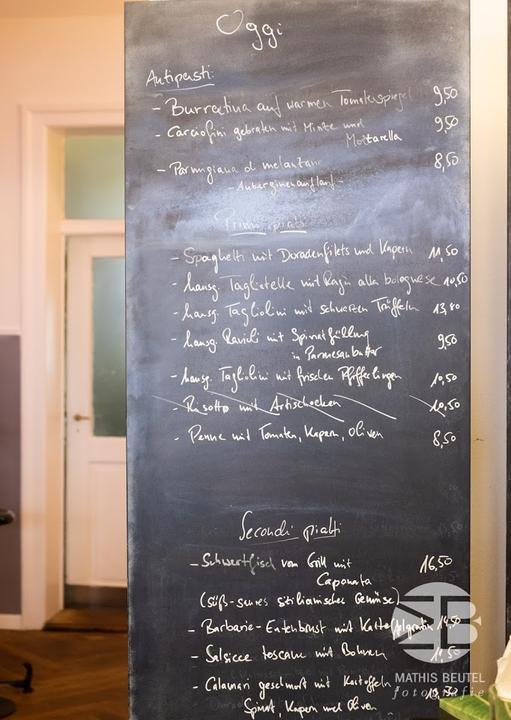 Oggi
Antipasti:
- Burratina auf warmen Tomatenspiegel 9,50
- Carciofini gebraten mit Minze und 9,50
Mozzarella
- Parmigiana di melanzane 8,50
- Auberginenauflauf -
Primi piatti
- Spaghetti mit Doradenfilets und Kapern 11,50
- hausg. Tagliatelle mit Ragù alla bolognese 10,50
- hausg. Tagliolini mit schwarzen Trüffeln
- hausg. Ravioli mit Spinatfüllung 9,50
in Parmesanbutter
- hausg. Tagliolini mit frischen Pfifferlingen 10,50
- Risotto mit Artischocken 10,50
- Penne mit Tomaten, Kapern, Oliven 8,50
Secondi piatti
- Schwertfisch vom Grill mit 16,50
Caponata
(süß-saures sizilianisches Gemüse)
- Barbarie-Entenbrust mit
- Salsicce toscane mit Bohnen
- Calamari geschmort mit Kartoffeln
Spinat, Kapern und Oliven
MATHIS BEUTEL
fotografie